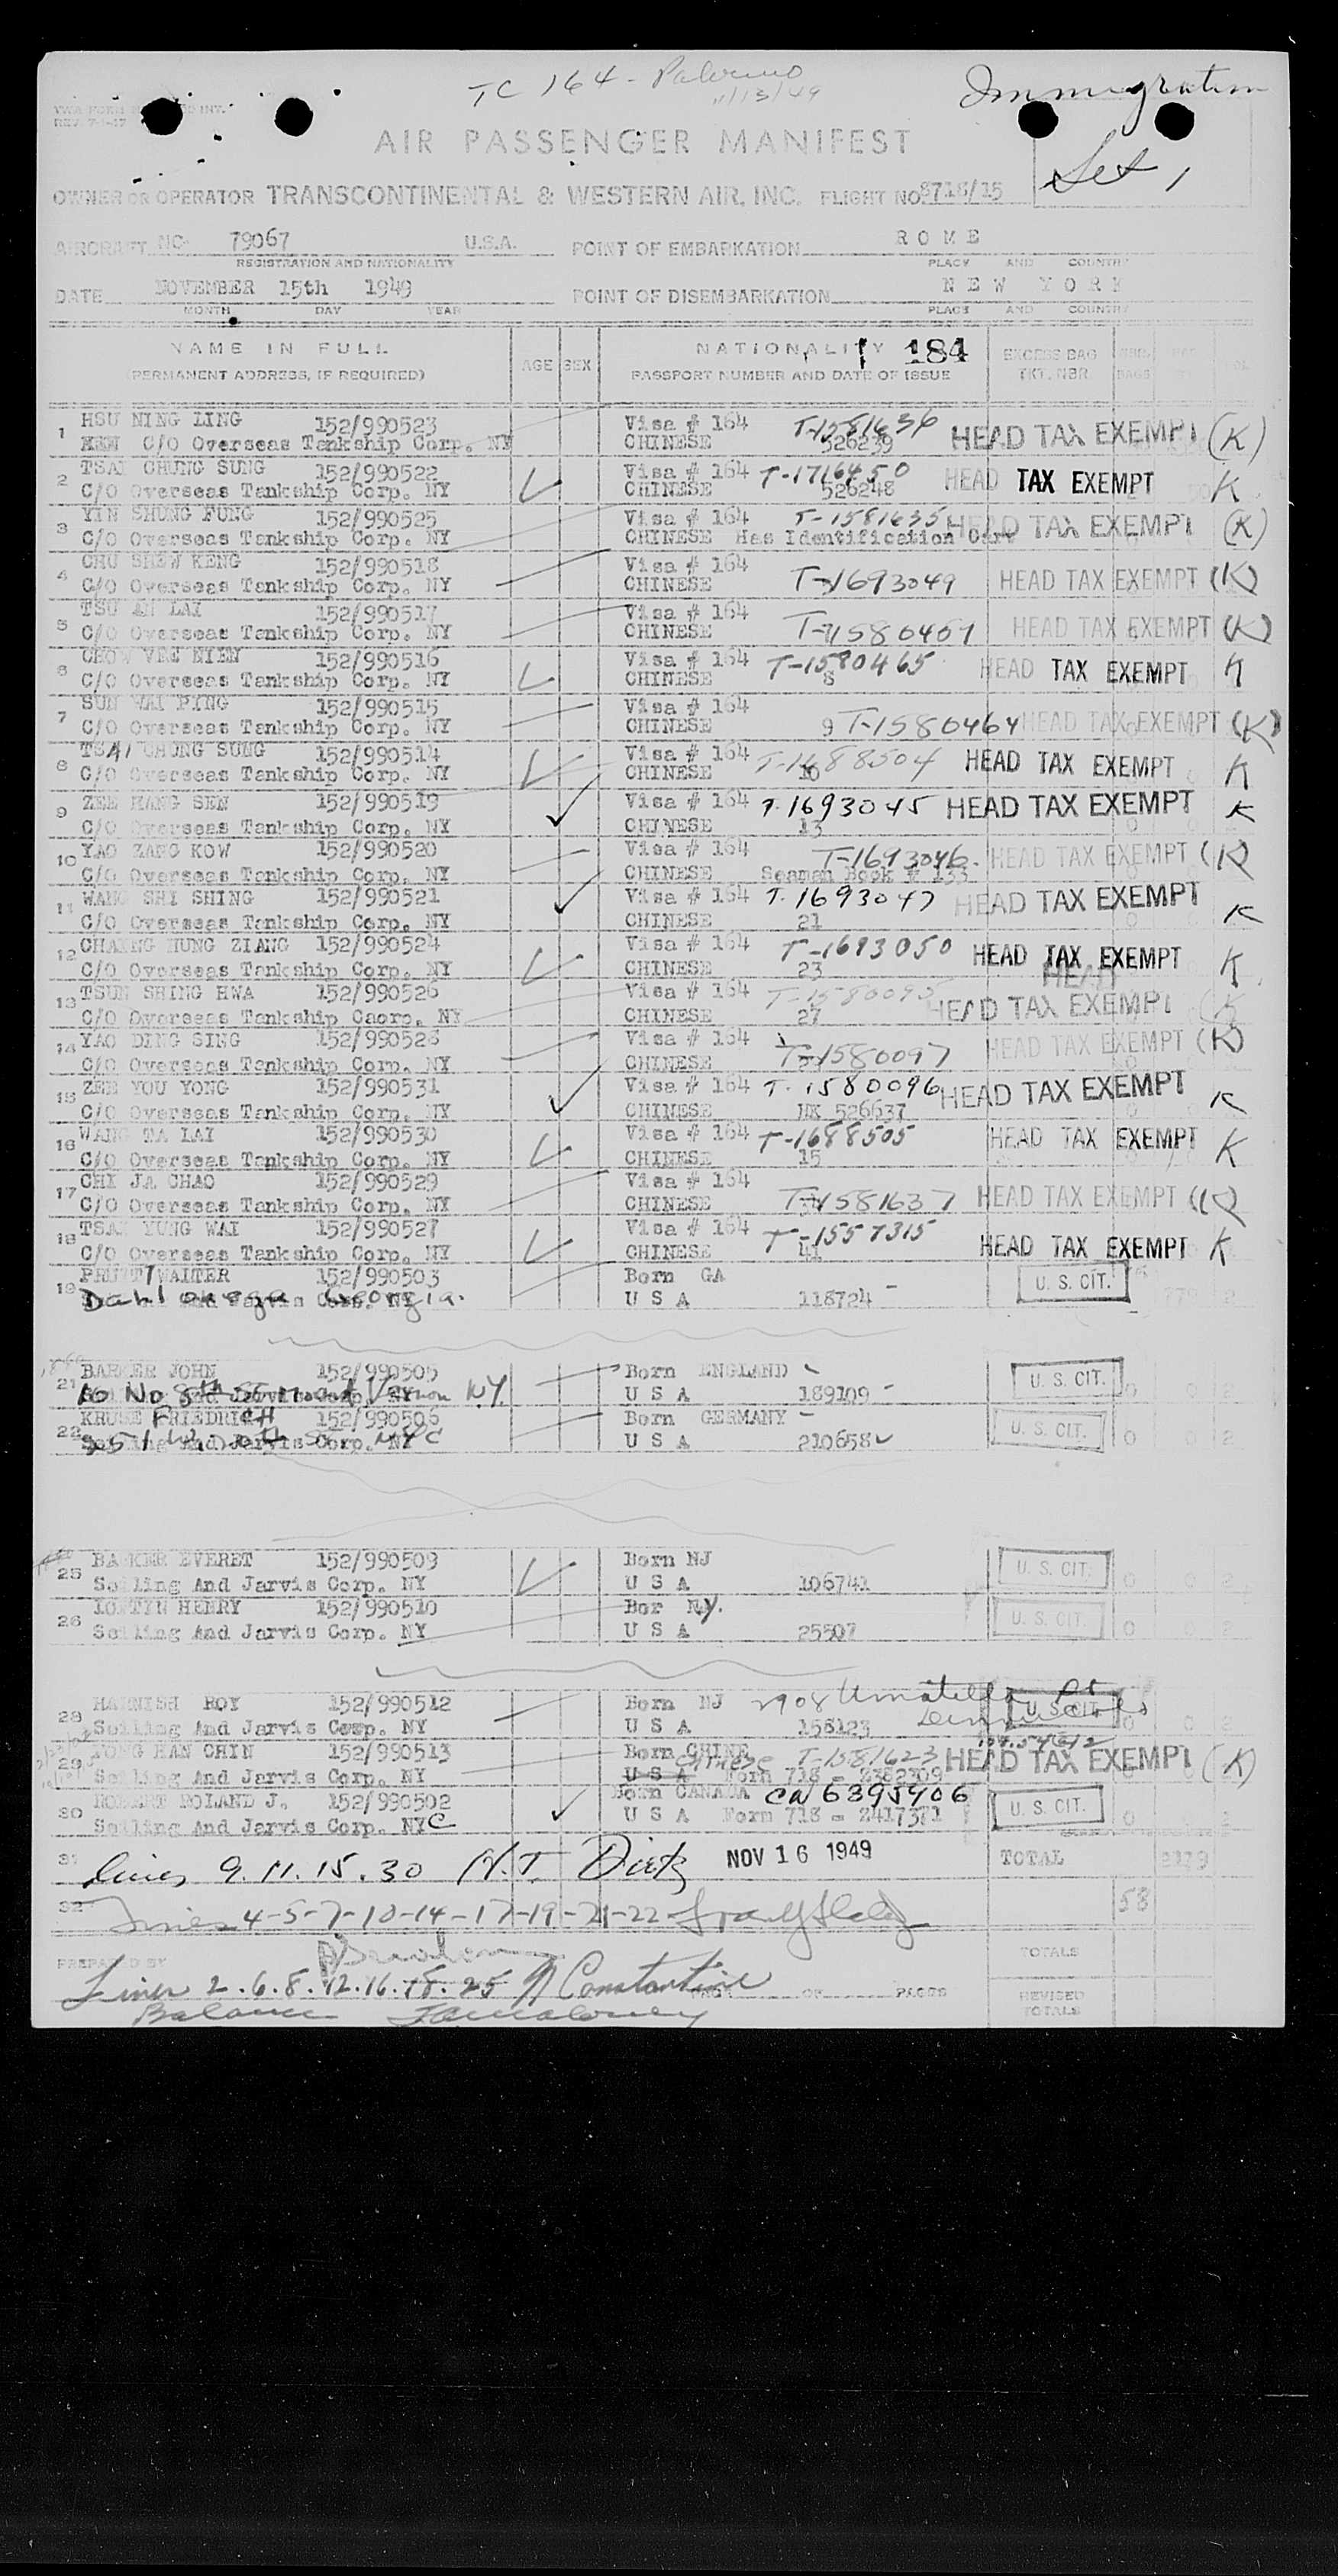 TC 164 - Palermo
11/13/49
Immigration
Set 1
AIR PASSENGER MANIFEST
OWNER OR OPERATOR TRANSCONTINENTAL & WESTERN AIR, INC. FLIGHT NO. 8718/15
AIRCRAFT NO. 79067 U.S.A. POINT OF EMBARKATION ROME
REGISTRATION AND NATIONALITY PLACE AND COUNTRY
DATE NOVEMBER 15th 1949 POINT OF DISEMBARKATION NEW YORK
MONTH DAY YEAR PLACE AND COUNTRY
NAME IN FULL AGE SEX NATIONALITY 184 EXCESS BAG
(PERMANENT ADDRESS, IF REQUIRED) PASSPORT NUMBER AND DATE OF ISSUE TKT. NBR. BAGS
1 HSU NING LING 152/990523 Visa # 164 T-1581636 HEAD TAX EXEMPT (K)
C/O Overseas Tankship Corp. NY CHINESE 526239
2 TSAI CHUNG SUNG 152/990522 Visa # 164 T-1716450 HEAD TAX EXEMPT K
C/O Overseas Tankship Corp. NY CHINESE 526248
3 YIN SHUNG FUNG 152/990525 Visa # 164 T-1581635 HEAD TAX EXEMPT (K)
C/O Overseas Tankship Corp. NY CHINESE Has Identification Card
4 CHU SHEW KENG 152/990518 Visa # 164
C/O Overseas Tankship Corp. NY CHINESE T-1693049 HEAD TAX EXEMPT (K)
5 TSU AN LAI 152/990517 Visa # 164
C/O Overseas Tankship Corp. NY CHINESE T-1580467 HEAD TAX EXEMPT (K)
6 CHOW VEE NIEN 152/990516 Visa # 164 T-1580465 HEAD TAX EXEMPT K
C/O Overseas Tankship Corp. NY CHINESE 8
7 SUN WAI PING 152/990515 Visa # 164
C/O Overseas Tankship Corp. NY CHINESE 9 T-1580464 HEAD TAX EXEMPT (K)
8 TSAI CHONG SUNG 152/990514 Visa # 164 T-1688504 HEAD TAX EXEMPT K
C/O Overseas Tankship Corp. NY CHINESE 10
9 ZEE HANG SEN 152/990519 Visa # 164 T-1693045 HEAD TAX EXEMPT K
C/O Overseas Tankship Corp. NY CHINESE 13
10 YAO ZANG KOW 152/990520 Visa # 164 T-1693046 HEAD TAX EXEMPT (K)
C/O Overseas Tankship Corp. NY CHINESE Seaman Book # 133
11 WANG SHI SHING 152/990521 Visa # 164 T-1693047 HEAD TAX EXEMPT K
C/O Overseas Tankship Corp. NY CHINESE 21
12 CHAENG HUNG ZIANG 152/990524 Visa # 164 T-1693050 HEAD TAX EXEMPT K
C/O Overseas Tankship Corp. NY CHINESE 23 HEAD
13 TSUN SHING HWA 152/990526 Visa # 164 T-1580095 HEAD TAX EXEMPT K
C/O Overseas Tankship Caorp. NY CHINESE 27
14 YAO DING SING 152/990528 Visa # 164
C/O Overseas Tankship Corp. NY CHINESE T-1580097 HEAD TAX EXEMPT (K)
15 ZEE YOU YONG 152/990531 Visa # 164 T-1580096 HEAD TAX EXEMPT K
C/O Overseas Tankship Corp. NY CHINESE HK 526637
16 WANG TA LAI 152/990530 Visa # 164 T-1688505 HEAD TAX EXEMPT K
C/O Overseas Tankship Corp. NY CHINESE 15
17 CHI JA CHAO 152/990529 Visa # 164
C/O Overseas Tankship Corp. NY CHINESE T-1581637 HEAD TAX EXEMPT (K)
18 TSAI YUNG WAI 152/990527 Visa # 164 T-1557315
C/O Overseas Tankship Corp. NY CHINESE 41 HEAD TAX EXEMPT K
19 PRUITT WALTER 152/990503 Born GA U. S. CIT.
Dahlonega Georgia. U S A 118724
21 BARKER JOHN 152/990505 Born ENGLAND U. S. CIT.
16 No 8th St Mount Vernon N.Y. U S A 189109
22 KRUSE FRIEDRICH 152/990506 Born GERMANY U. S. CIT.
U S A 210658
25 BARKER EVERET 152/990509 Born NJ U. S. CIT.
Seiling And Jarvis Corp. NY U S A 106741
26 HENRY 152/990510 Bor Ny. U. S. CIT.
Seiling And Jarvis Corp. NY U S A 25507
28 HARNISH ROY 152/990512 Born NJ 2908 Umatella St U. S. CIT.
Seiling And Jarvis Corp. NY U S A 158123
29 TONG HAN CHIN 152/990513 Born CHINE Chinese T-1581623 HEAD TAX EXEMPT (K)
Seiling And Jarvis Corp. NY U S A Form 718 - 2382309
30 ROBERT ROLAND J. 152/990502 Born CANADA CN 6395406 U. S. CIT.
Seiling And Jarvis Corp. NYC U S A Form 718 - 2417371
31 Lines 9.11.15.30 H.T. Dietz NOV 16 1949 TOTAL
32 Lines 4-5-7-10-14-17-19-21-22 53
PREPARED BY TOTALS
Lines 2.6.8.12.16.18.25 Constantine OF PAGES REVISED
Balance TOTALS